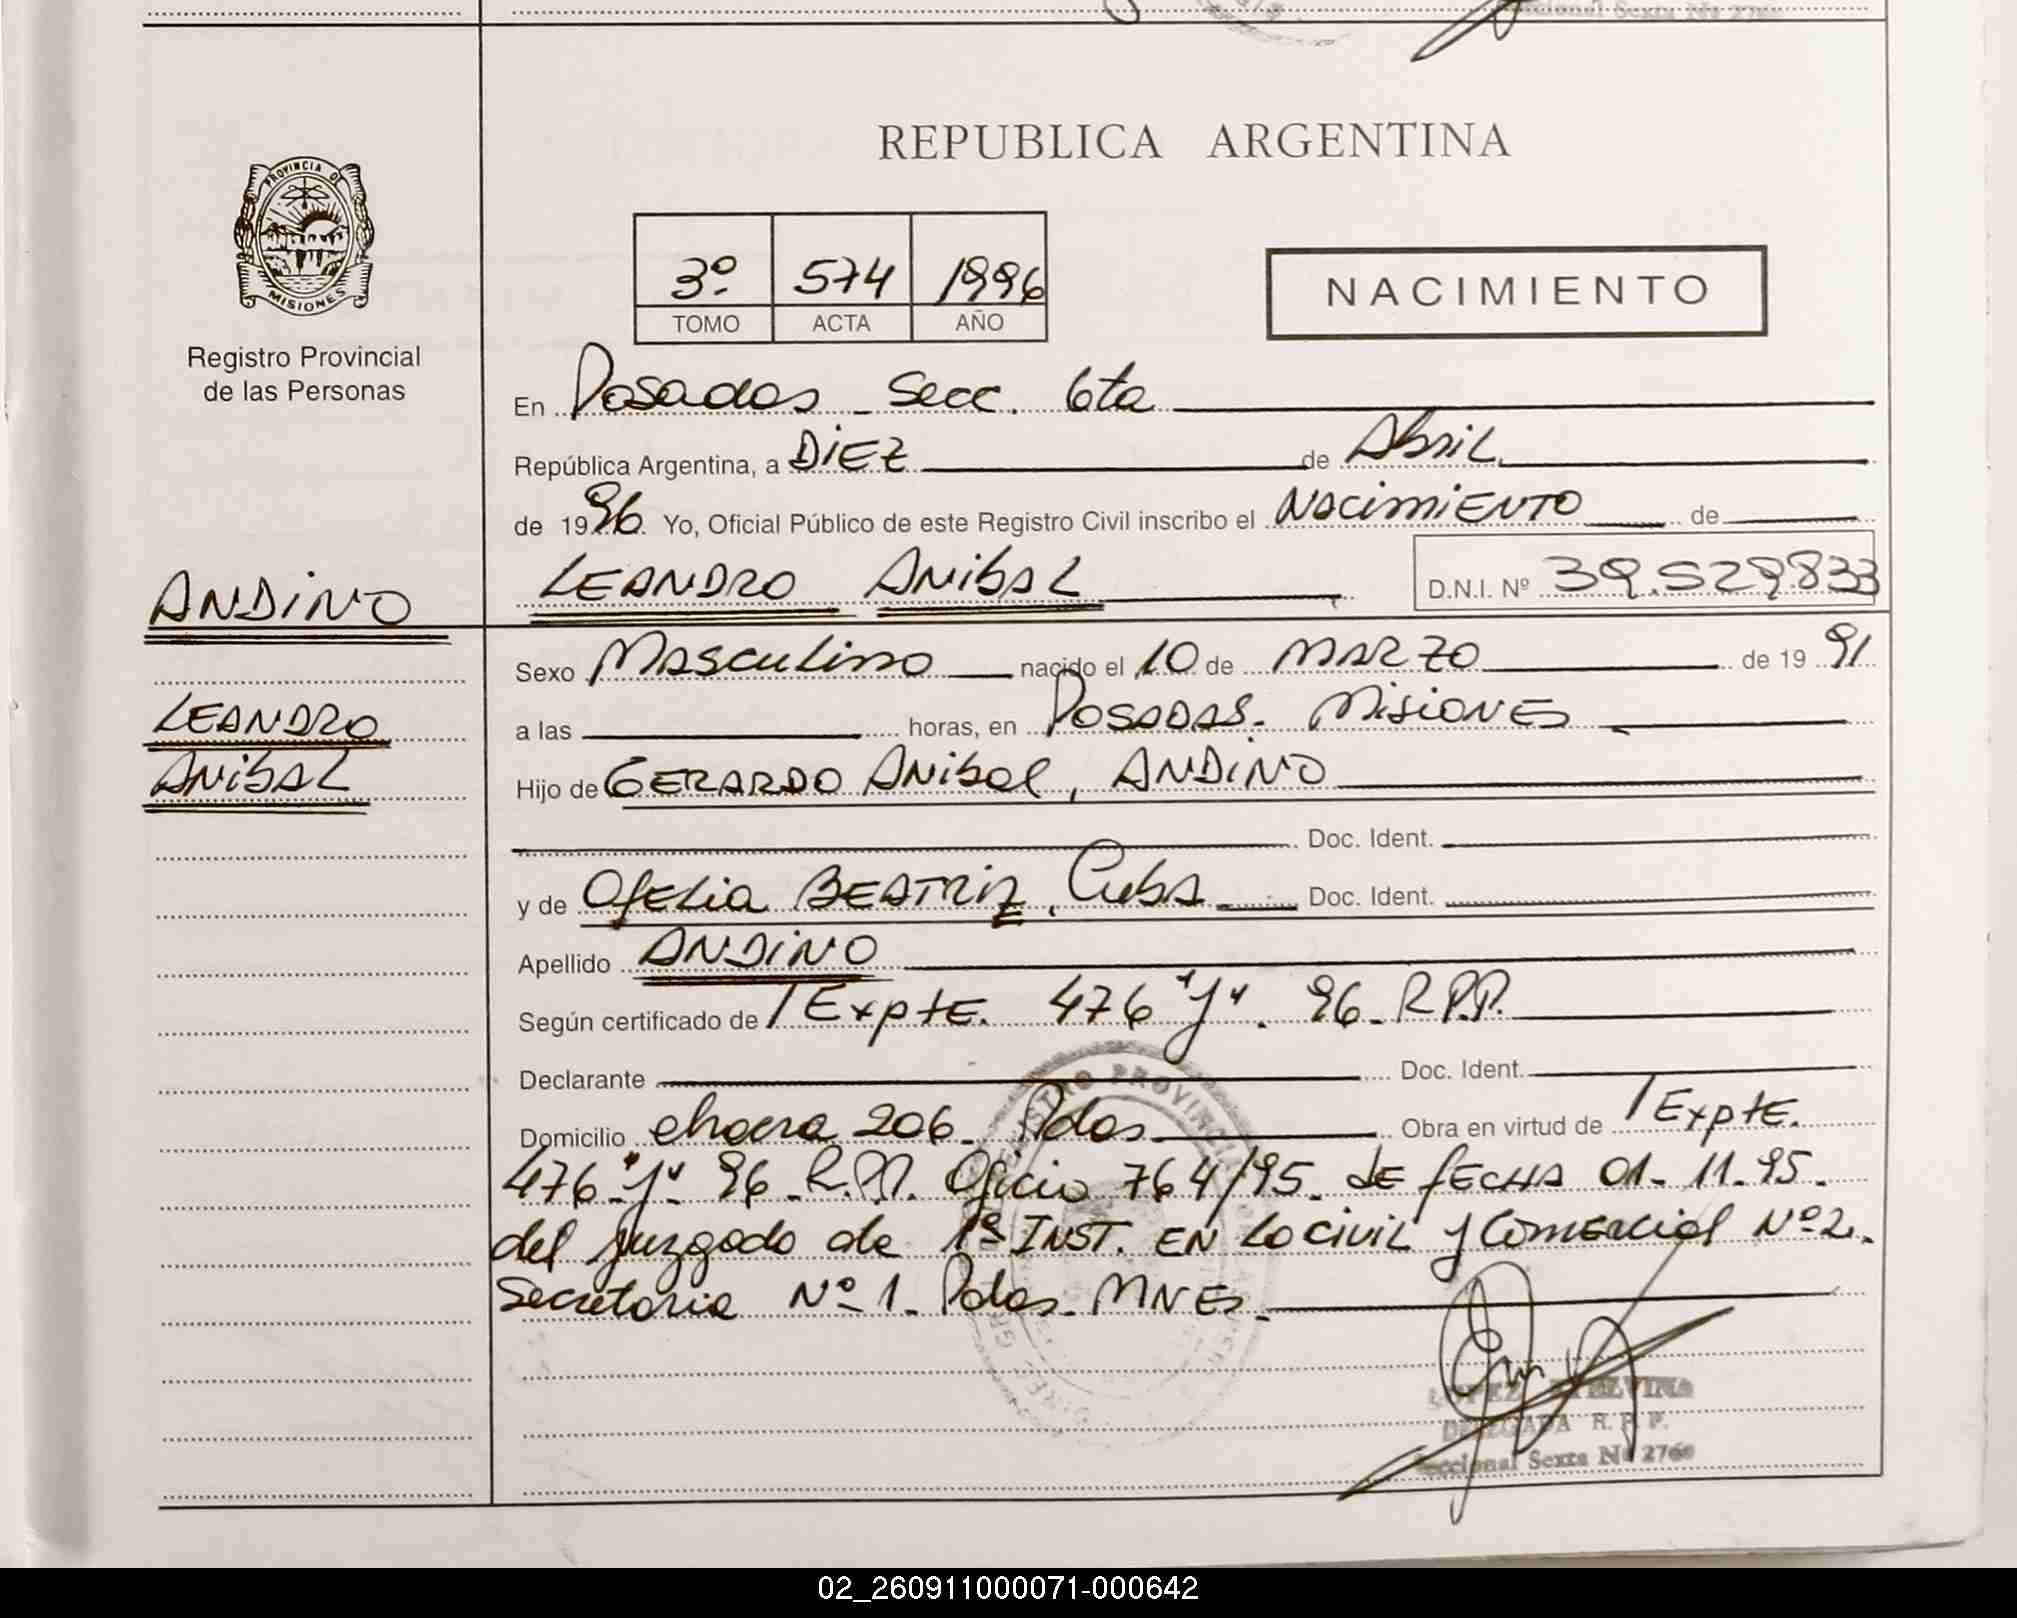 REPUBLICA ARGENTINA
PROVINCIA DE
MISIONES
Registro Provincial
de las Personas
3º 574 1996
TOMO ACTA AÑO
NACIMIENTO
En Posadas - Secc. 6ta
República Argentina, a DiEZ de Abril
de 1996 Yo, Oficial Público de este Registro Civil inscribo el NaciMiENTO de
LEANDRO ANibAL D.N.I. Nº 39.529.833
ANDiNO
LEANDRO
ANibAL
Sexo Masculino nacido el 10 de MARZO de 1991
a las horas, en POSADAS - MisiONES
Hijo de GERARDO ANibal, ANDiNO
Doc. Ident.
y de OfELia BEATRiz, Cuba Doc. Ident.
Apellido ANDiNO
Según certificado de / ExptE. 476 "y". 96 - R.P.P.
Declarante Doc. Ident.
Domicilio chacra 206 - Pdas - Obra en virtud de / ExptE.
476 "y" 96 - R.P.P. Oficio 764/95 - dE fECHA 01 - 11 - 95.
del juzgado de 1º INST. EN Lo Civil y Comercial Nº 2.
Secretaria Nº 1 - Pdas - MNES -
LOPEZ ETELVINA
DELEGADA R. P. P.
Seccional Sexta Nº 2760
02_260911000071-000642